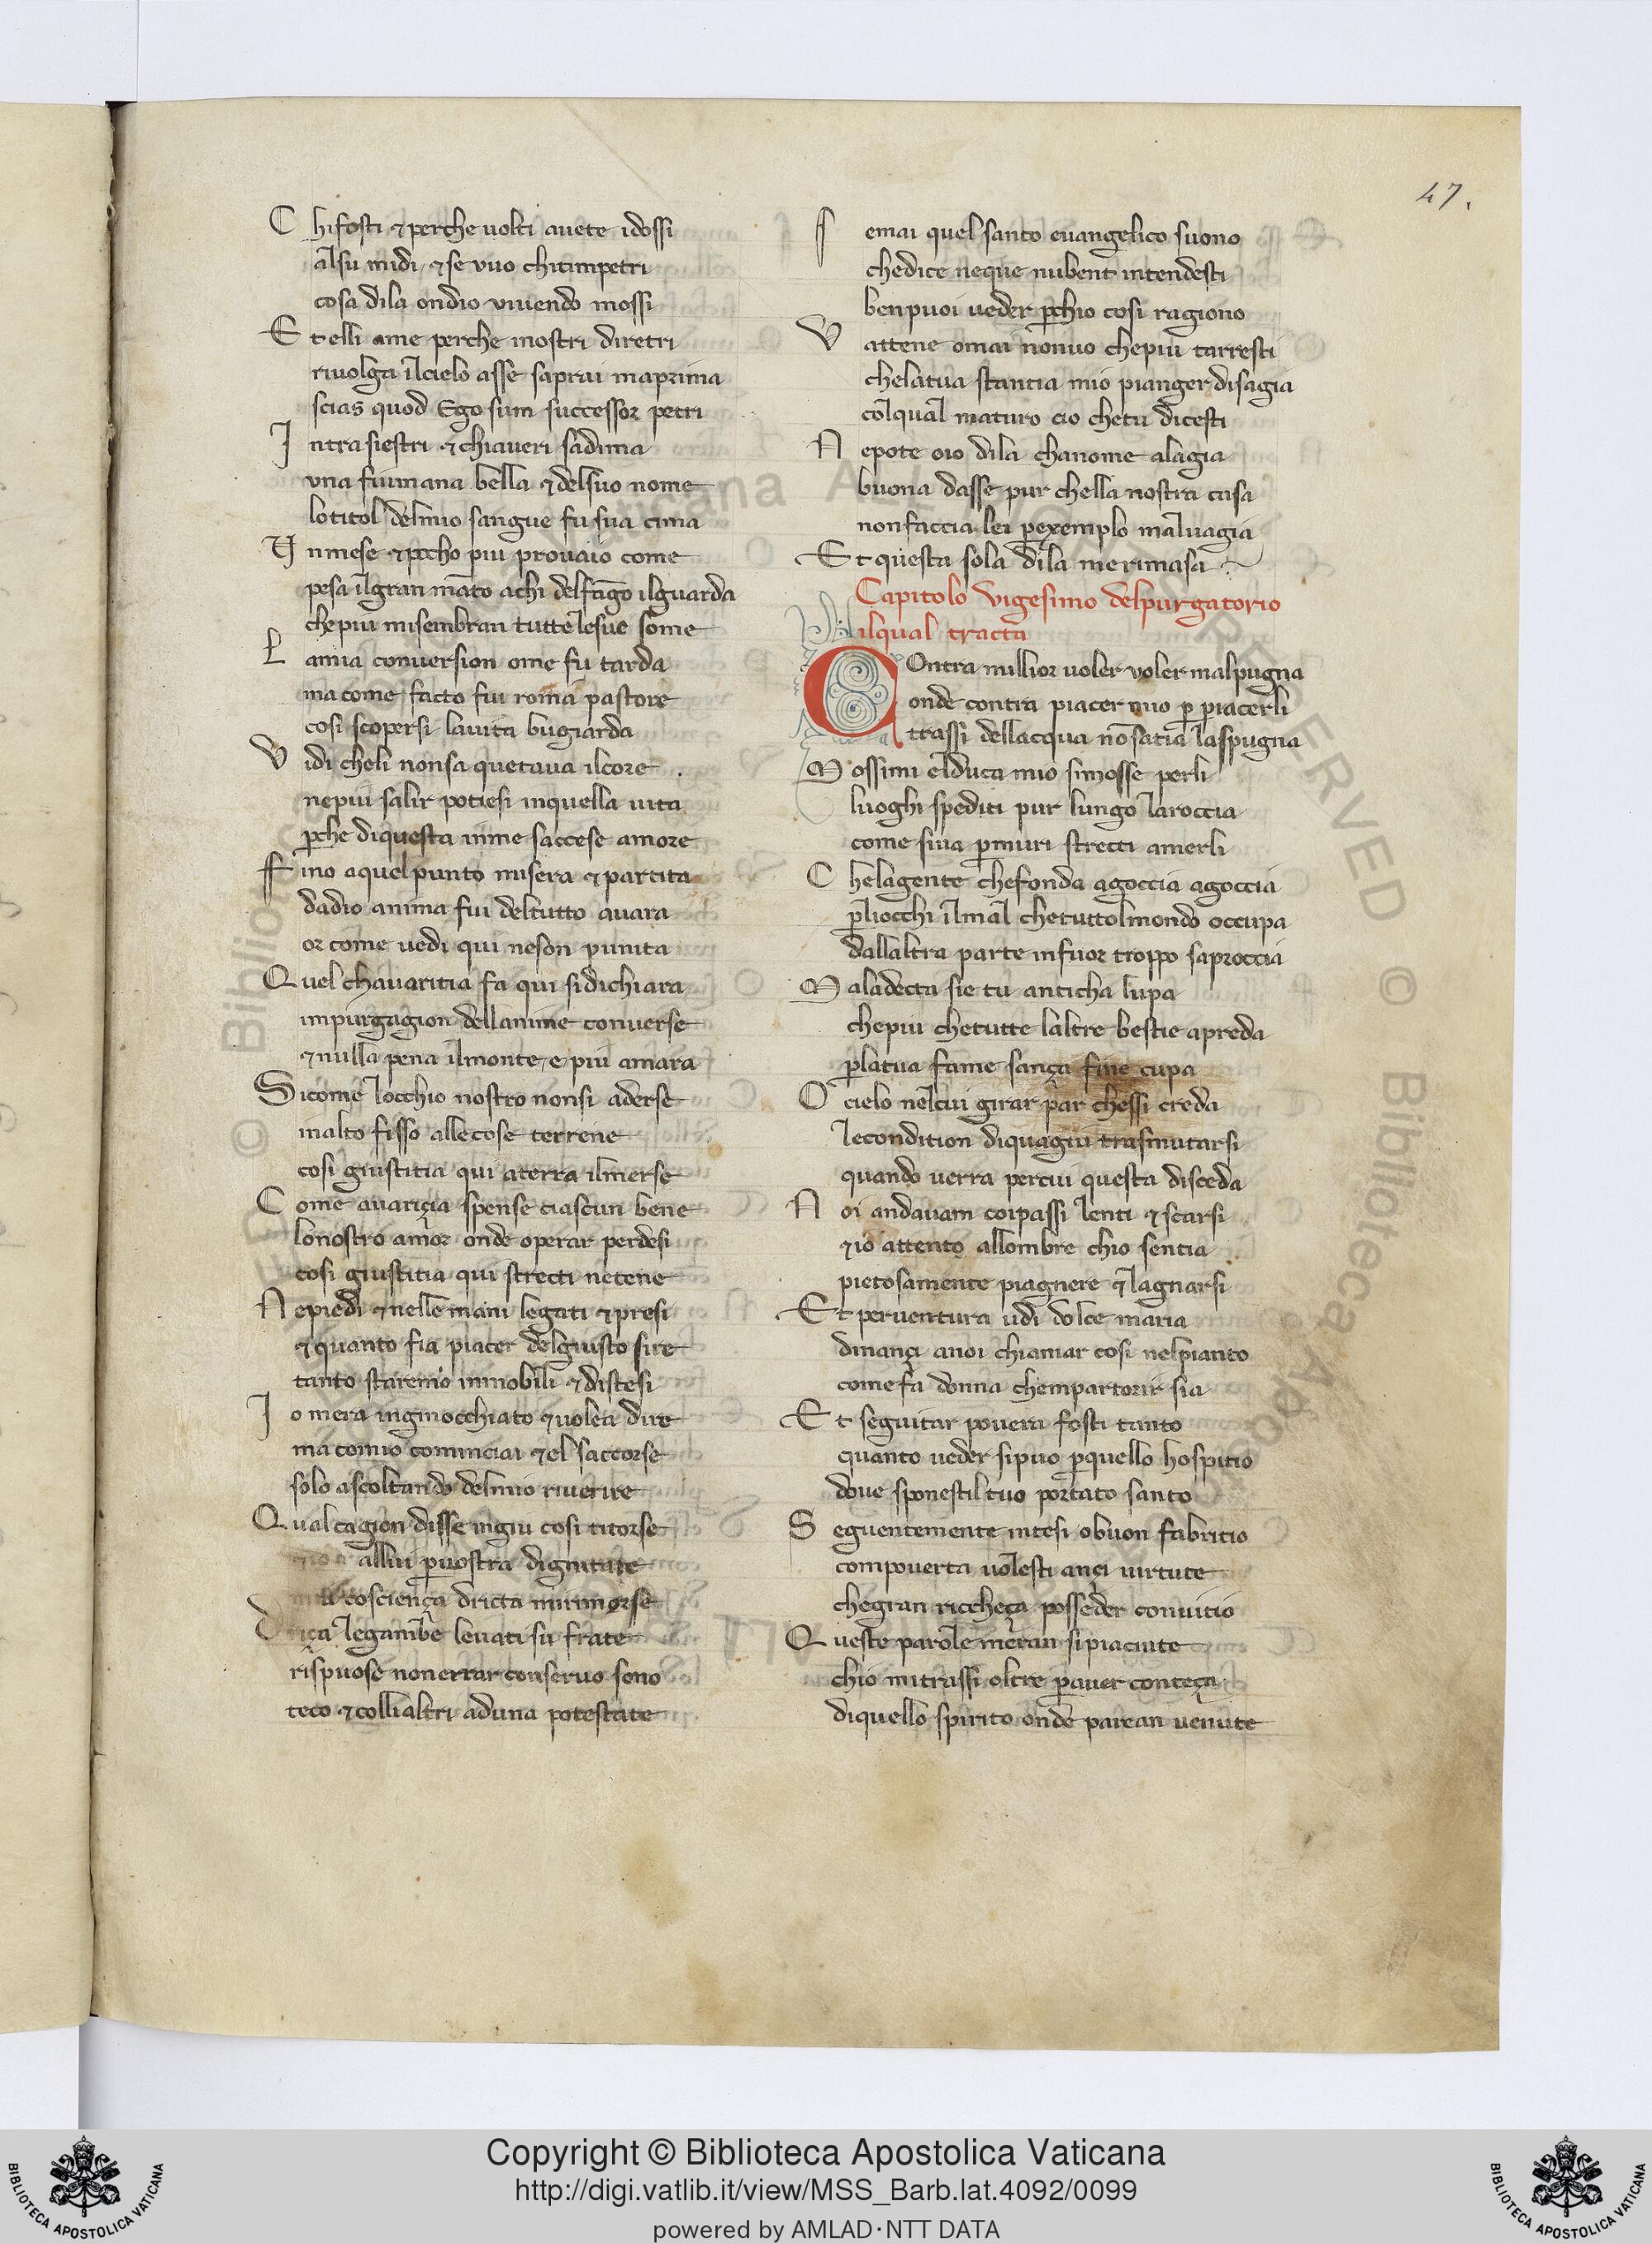 47.
Chi fosti & perche uolti auete idossi
alsu midi & se vuo chitimpetri
cosa dila ondio viuendo mossi
Et elli ame perche inostri diretri
riuolga ilcielo asse saprai maprima
scias quod Ego sum successor petri
Intra siestri & chiaueri sadima
vna fiumana bella & delsuo nome
lotitol delmio sangue fu sua cima
Vn mese & poccho piu prouaio come
pesa ilgran māto achi delfāgo ilguarda
chepiu misembran tutte lesue some
La mia conuersion ome fu tarda
ma come facto fui roman pastore
cosi scopersi lauita bugiarda
Vidi cheli nonsa quetaua ilcore
nepiu salir potiesi inquella uita
ꝑche diquesta inme saccese amore
Fino aquelpunto misera & partita
dadio anima fui deltutto auara
or come uedi qui neson punita
Quel chauaritia fa qui sidichiara
impurgagion dellanime conuerse
& nulla pena ilmonte e piu amara
Sicome locchio nostro nonsi aderse
inalto fisso allecose terrene
cosi giustitia qui aterra ilmerse
Come auariçia spense ciascun bene
lonostro amor onde operar perdesi
cosi giustitia qui strecti netene
Nepiedi & nelle mani legati & presi
& quanto fia piacer delgiusto sire
tanto staremo inmobili & distesi
Io mera inginocchiato & uolea dire
ma comio cominciai & el saccorse
solo ascoltando delmio riuerire
Qual cagion disse ingiu cosi titorse
allui ꝑuostra dignitate
mia cosciença dricta mirimorse
Driça legambe leuati su frate
rispuose nonerrar conseruo sono
teco & collialtri aduna potestate
Se mai quel santo euangelico suono
chedice neque nubent intendesti
benpuoi ueder ꝑchio cosi ragiono
Vattene omai nonuo chepiu tarresti
chelatua stantia mio pianger disagia
colqual maturo cio chetu dicesti
Nepote oio dila chanome alagia
buona dasse pur chella nostra casa
nonfaccia lei ꝑexemplo maluagia
Et questa sola dila merimasa
Capitolo vigesimo delpurgatorio
ilqual tracta
COntra millior uoler voler malpugna
onde contra piacer mio ꝑ piacerli
trassi dellacqua nō satia laspugna
Mossimi elduca mio simosse perli
luoghi spediti pur lungo laroccia
come siua ꝑmuri strecti amerli
Chelagente chefonda agoccia agoccia
ꝑliocchi ilmal chetuttolmondo occupa
dallaltra parte infuor troppo saproccia
Maladecta sie tu anticha lupa
chepiu chetutte laltre bestie apreda
ꝑlatua fame sança fine cupa
O cielo nelcui girar par chessi creda
lecondition diquagiu trasmutarsi
quando uerra percui questa disceda
Noi andauam coipassi lenti & scarsi
& io attento allombre chio sentia
pietosamente piagnere & lagnarsi
Et peruentura udi dolce maria
dinançi anoi chiamar cosi nelpianto
come fa donna chempartorir sia
Et seguitar pouera fosti tanto
quanto ueder sipuo ꝑquello hospitio
doue sponestil tuo portato santo
Seguentemente intesi obuon fabritio
compouerta uolesti ançi uirtute
chegran riccheça posseder conuitio
Queste parole meran sipiaciute
chio mitrassi oltre ꝑauer conteça
diquello spirito onde parean uenute
© Biblioteca Apostolica Vaticana ALL RIGHTS RESERVED
Copyright © Biblioteca Apostolica Vaticana
http://digi.vatlib.it/view/MSS_Barb.lat.4092/0099
powered by AMLAD·NTT DATA
BIBLIOTECA APOSTOLICA VATICANA
BIBLIOTECA APOSTOLICA VATICANA